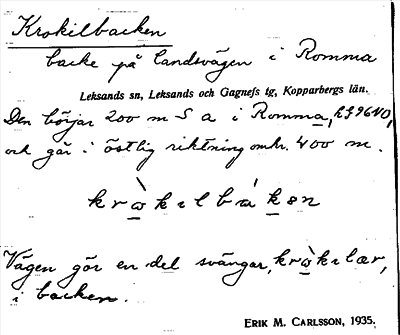 Krokilbacken
backe på landsvägen i Romma
Leksands sn, Leksands och Gagnefs tg, Kopparbergs län.
Den börjar 200 m S a i Romma,
och går i östlig riktning omkr. 400 m.
kràkɩlbákən
Vägen gör en del svängar, kràkɩlær,
i backen.
ERIK M. CARLSSON, 1935.